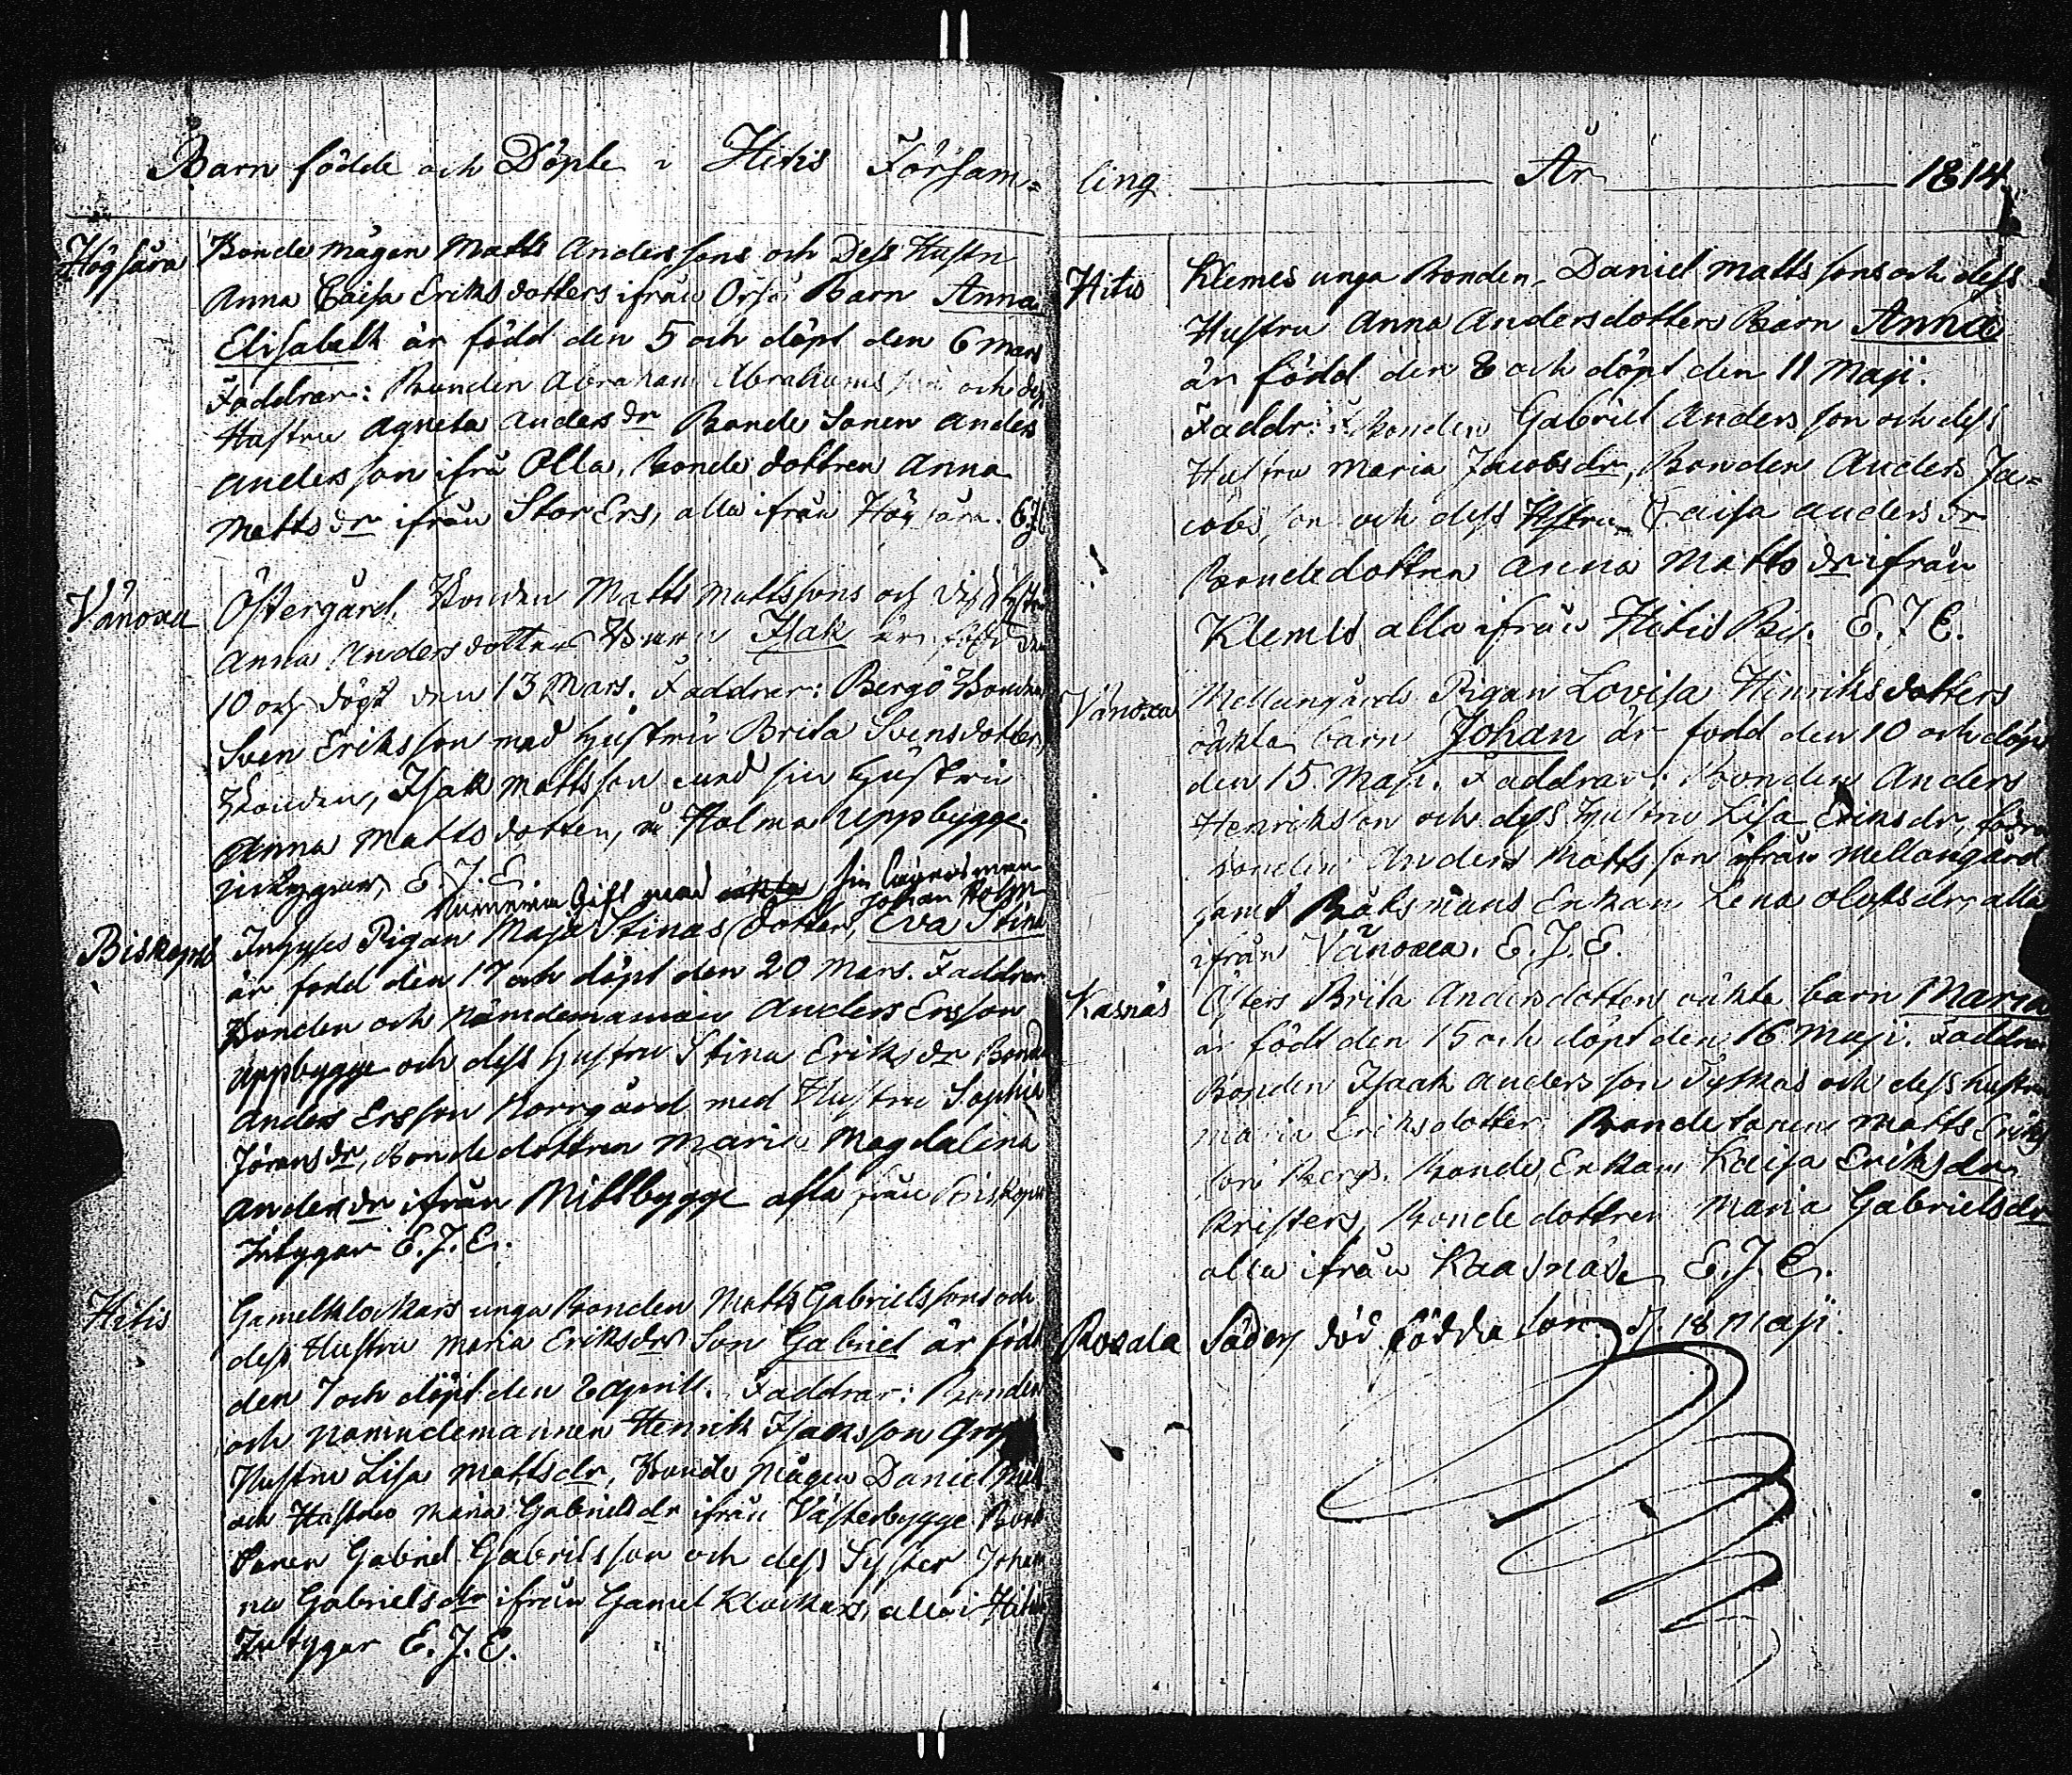 Barn födde och Döpte i Hitis Församling År 1814
Högsåra
Bonde mågen Matts Anderssons och Dess Hustru
Anna Caisa Eriksdotters ifrån Barn Anna
Elisabeth är född den 5 och döpt den 6 Mars
Faddrar: Bonden Abraham Abrahams son och dess
Hustru Agneta Anders dr Bonde Sonen Anders
Anders son ifrå Olla, Bonde dottren Anna
Matts dr ifrån Stor Ers, alla ifrån Högsåra.
Vänoxa
Östergård Bonden Matts Mattssons och
Anna Andersdotters Isak är född den
10 och döpt den 13 Mars. Faddrar: Bergö Bonden
Sven Eriksson med Hustru Brita Svensdotter,
Bonden, Isak Mattsson med sin Hustru
Anna Mattsdotter, Holma Uppbygge.
intygar E. J. E
Gift med
Johan
Biskops
Inhyses Pigan Maja Stinas Dotter, Eva Stina
är född den 17 och döpt den 20 Mars. Faddrar
Bonden och Nämdemannen Anders Ersson
Uppbygge och dess Hustru Stina Eriks dr Bonden
Anders Ersson Norrgård med Hustru Sophia
Jörans dr, Bonde dottren Maria Magdalena
Anders dr ifrån Mittbygge alla från Biskops
Intygar E. J. E.
Hitis
Gamelklockars unga Bonden Matts Gabrielssons och
dess Hustru Maria Eriksdrs Son Gabriel är född
den 7 och döpt den 8 Aprill. Faddrar: Bonden
och Nämndemannen Henrik Isaksson
Hustru Lisa Mattsdr, Bonde Mågen Daniel
och Hustru Maria Gabriels dr ifrån Västerbygge
Sonen Gabriel Gabrielsson och dess Syster Johan
na Gabrielsdr ifrån Gamel Klockars, alla i Hitis
Intygar E. J. E.
Hitis
Klemes unga Bonden Daniel Matts sons och dess
Hustru Anna Andersdotters Barn Anna
är född den 8 och döpt den 11 Maji.
Faddr: Bonden Gabriel Anders son och dess
Hustru Maria Jacobsdr, Bonden Anders Ja=
cobs son och dess Hustru Caisa Anders dr
Bondedottren Anna Matts dr ifrån
Klemes alla ifrån Hitis By. E. J. E.
Vänoxa
Mellangårds Pigan Lovisa Hinriksdotters
oäkta barn Johan är född den 10 och döpt
den 15 Maji. Faddrar: Bonden Anders
Henriksson och dess Hustru Lisa Eriksdr,
Bonden Anders Mattsson ifrån Mellangård
samt Båtsmans Enkan Lena Olofsdr, alla
ifrån Vänoxa. E. J. E.
Kasnäs
Östers Brita Andersdotters oäkta barn Maria
är född den 15 och döpt den 16 Maji. Faddrar
Bonden Isaak Anders son och dess hustru
Maria Eriksdotter Bonde Sonen Matts Eriks
son Bergs. Bonde Enkan Kaisa Eriksdr
Kristers, Bonde dottren Maria Gabrielsdr
alla ifrån Kaasnäs. E. J. E.
Rosala
Söders död födda son d. 18 Maji.